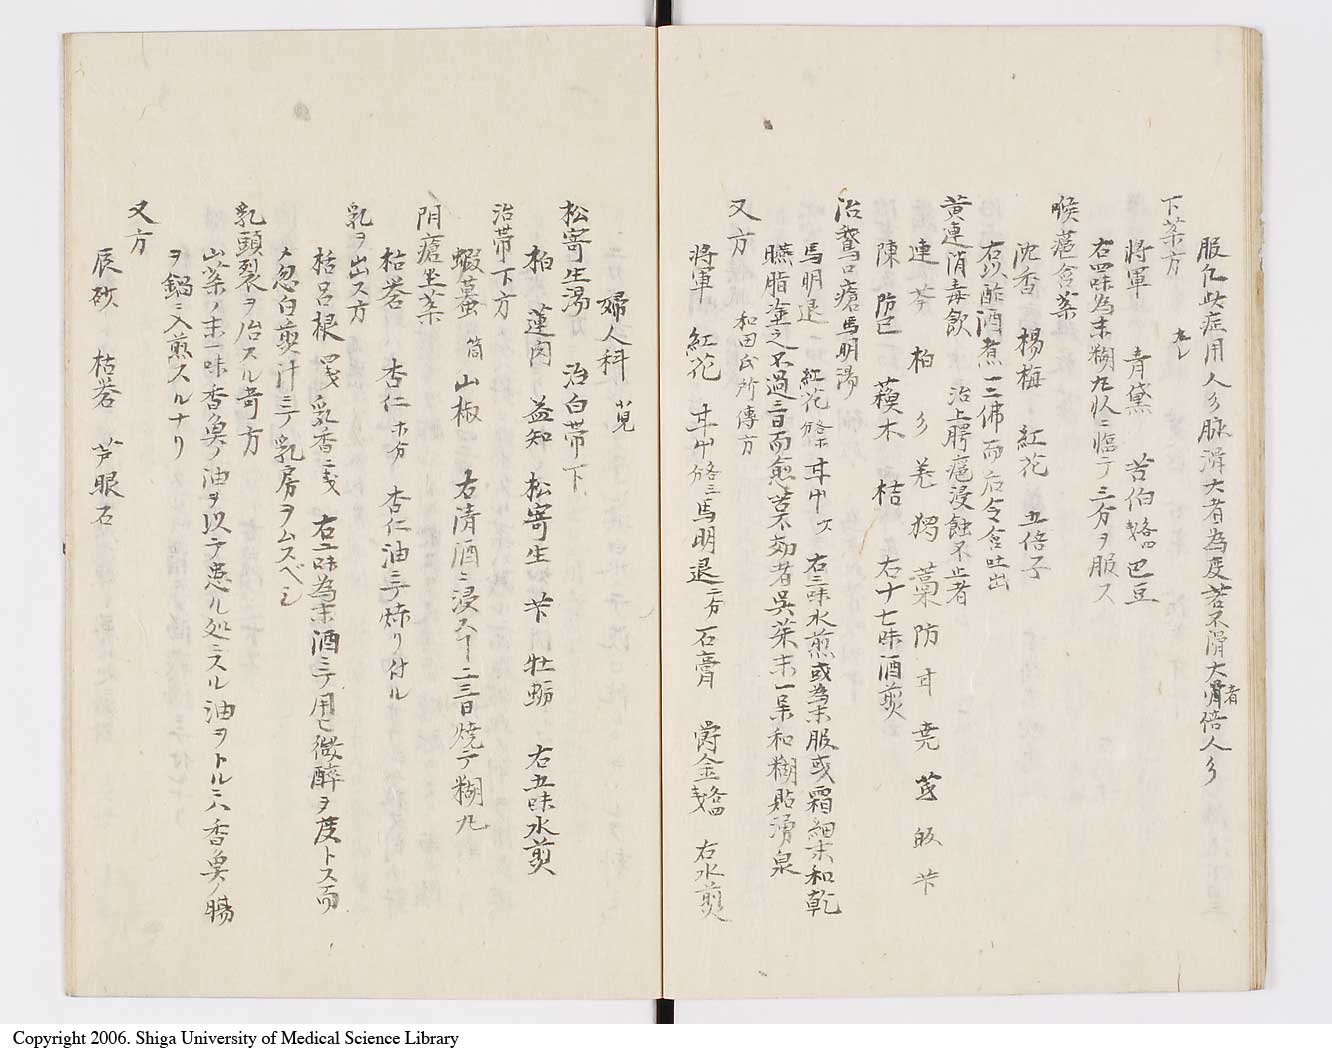 服乞此症用人彡脉滑大者為度若不滑大者倍人彡
下茱方
将軍 青黛 苦伯 巴豆
右四味為末糊丸臥ニ臨テ三分ヲ服ス
喉瘡含茱
沈香 楊梅 紅花 五倍子
右以酢酒煮一二沸而后令含吐出
黄連消毒飲 治上腭瘡浸蝕不止者
連 芩 柏 彡 羌 獨 藁 防 甘 芪 皈 芐
陳 防已 蘓木 桔 右十七味酒煎
治鵞口瘡馬明湯
馬明退 紅花 甘中 右三味水煎或為末服或霜細末和乾
臙脂塗之不過三日而愈若不効者呉茱末一味和糊貼湧泉
又方 和田氏所傳方
将軍 紅花 甘中 馬明退二分 石膏 欝金 右水煎
婦人科
松寄生湯 治白帯下
柏 蓮肉 益知 松寄生 芐 牡蛎 右五味水煎
治帯下方
蝦蟇 山椒 右清酒ニ浸スヿ二三日焼テ糊丸
阴瘡坐茱
枯礬 杏仁 杏仁油ニテ煉リ付ル
乳ヲ出ス方
括呂根 乳香 右二味為末酒ニテ用ヒ微醉ヲ度トス而
〆忽白煎汁ニテ乳房ヲムスベシ
乳頭裂ヲ治スル竒方
山茱ノ末一味香臭ノ油ヲ以テ患ル処ニスル油ヲトルニハ香臭ノ腸
ヲ鍋ニ入煎スルナリ
又方
辰砂 枯礬 芦眼石
Copyright 2006. Shiga University of Medical Science Library